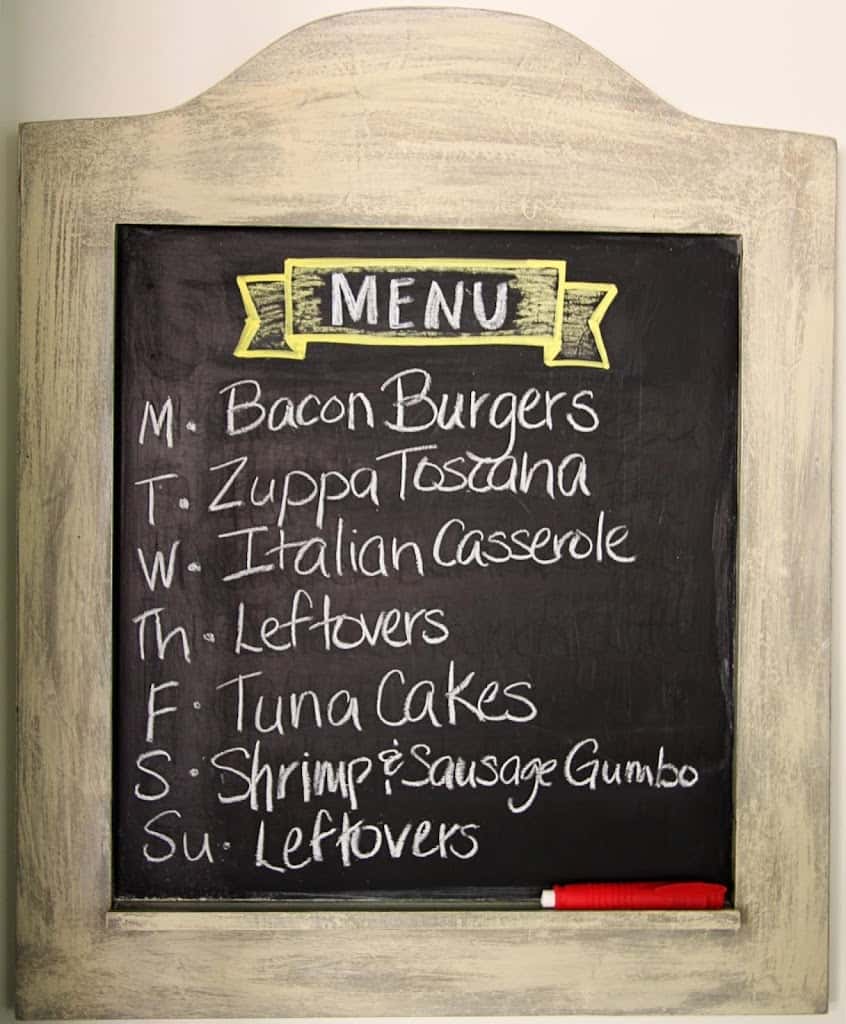 MENU
M. Bacon Burgers
T. Zuppa Toscana
W. Italian Casserole
Th. Leftovers
F. Tuna Cakes
S. Shrimp & Sausage Gumbo
Su. Leftovers